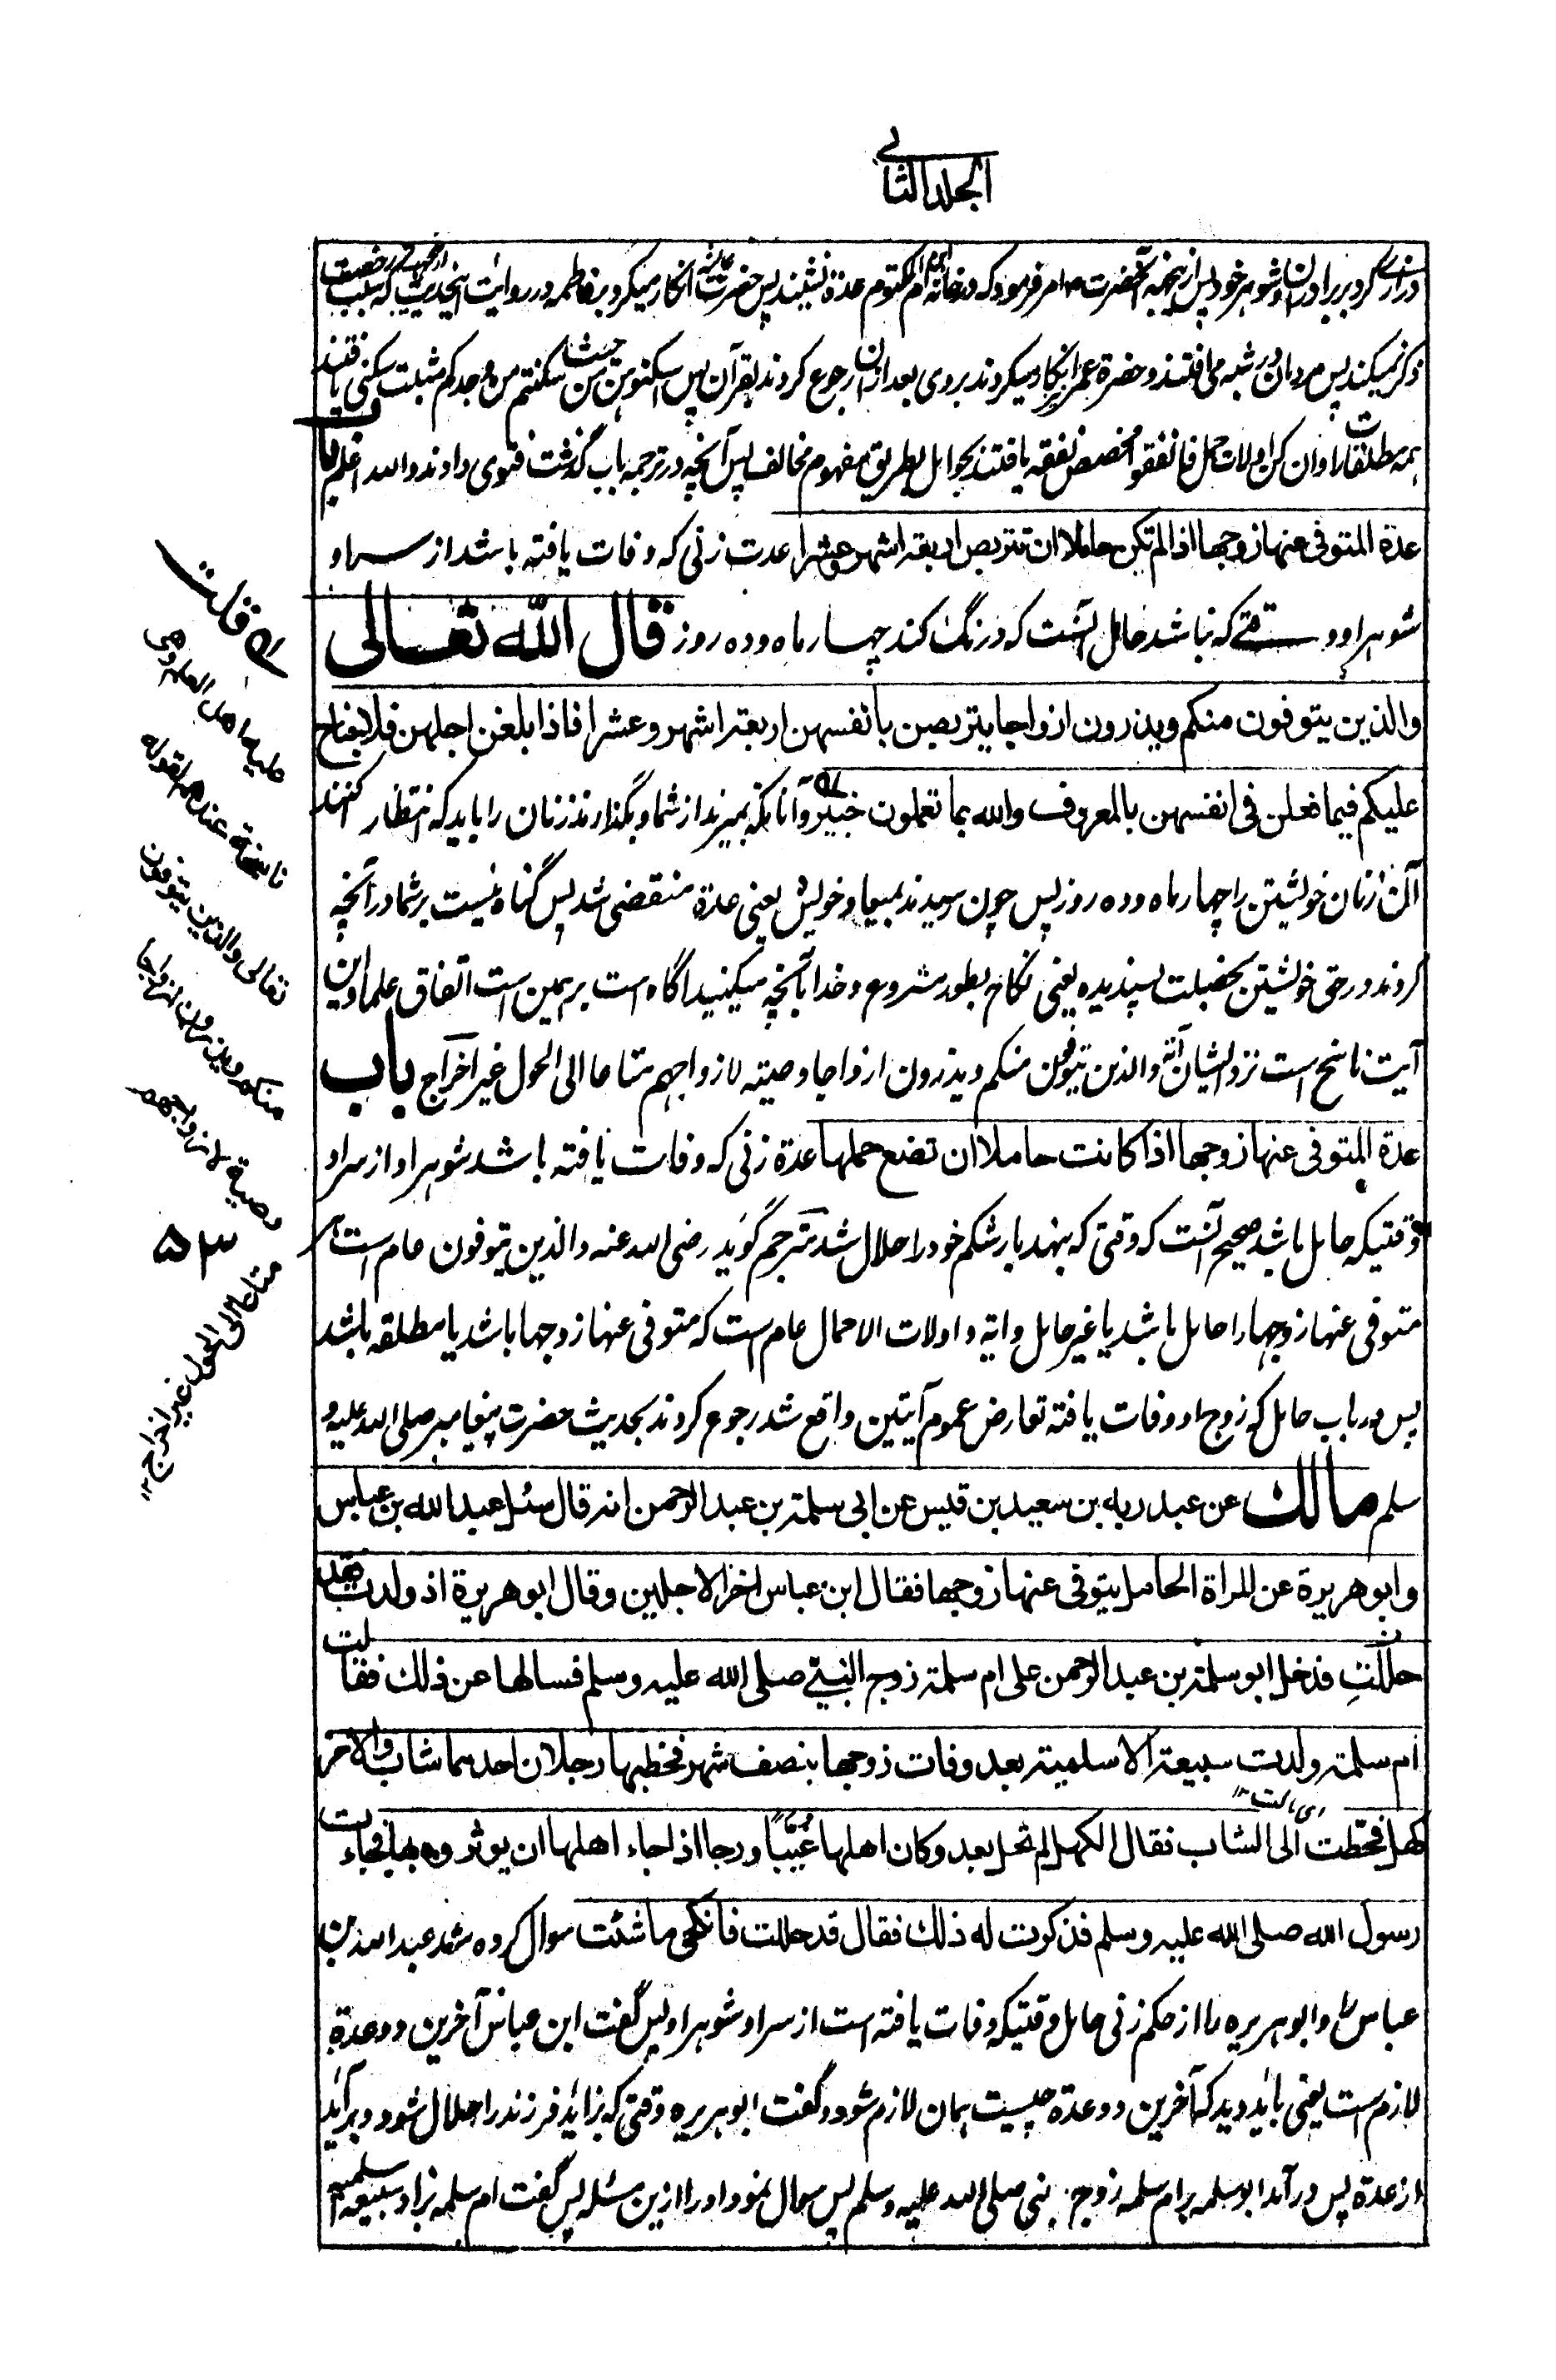 الجلد الثانی
درازی کرد بر برادران شوهر خود پس از ینجهة آنحضرت امر فرمود که در خانه ابن ام مکتوم عدة نشیند پس حضرت عائشه انکار میکرد بر فاطمه در روایت اینحدیث که سبب رخصت
ذکر نمیکند پس مردمان در شبه می افتند و حضرة عمر انکار میکردند بر وی بعد ازان رجوع کردند بقرآن پس اسکنوهن من حیث سکنتم من وجدکم مثبت سکنی یافتند
همه مطلقات را وان کن اولات حمل فانفقوا مخصص نفقه یافتند بحوامل بطریق مفهوم مخالف پس آنچه در ترجمه باب گذشت فتوی دادند والله اعلم باب
عدة المتوفی عنها زوجها اذا لم تکن حاملا ان تتربص اربعة اشهر وعشرا عدت زنی که وفات یافته باشد از سر او
شوهر او وقتے که نباشد حامل آنست که درنگ کند چهار ماه و ده روز قال الله تعالی
والذین یتوفون منکم ویذرون ازواجا یتربصن بانفسهن اربعة اشهر وعشرا فاذا بلغن اجلهن فلا جناح
علیکم فیما فعلن فی انفسهن بالمعروف والله بما تعملون خبیر وآنانکه بمیرند از شما و بگذارند زنان را باید که انتظار کنند
آن زنان خویشتن را چهار ماه و ده روز پس چون رسیدند بمیعاد خویش یعنی عدة منقضی شد پس گناه نیست بر شما در آنچه
کردند در حق خویشتن بخصلت پسندیده یعنی نکاح بطور مشروع و خدا بآنچه میکنید اگاه است برهمین است اتفاق علما و این
آیت ناسخ است نزد ایشان آیة والذین یتوفون منکم ویذرون ازواجا وصیة لازواجهم متاعا الی الحول غیر اخراج باب
عدة المتوفی عنها زوجها اذا کانت حاملا ان تضع حملها عدة زنی که وفات یافته باشد شوهر او از سر او
وقتیکه حامل باشد صحیح آنست که وقتی که بنهد بار شکم خود را حلال شد مترجم گوید رضی الله عنه والذین یتوفون عام است
متوفی عنها زوجها را حامل باشد یا غیر حامل وآیه واولات الاحمال عام است که متوفی عنها زوجها باشد یا مطلقه باشد
پس در باب حامل که زوج او وفات یافته تعارض عموم آیتین واقع شد رجوع کردند بحدیث حضرت پیغامبر صلی الله علیه و
سلم مالك عن عبد ربه بن سعید بن قیس عن ابی سلمة بن عبد الرحمن انه قال سئل عبد الله بن عباس
وابو هریرة عن المراة الحامل یتوفی عنها زوجها فقال ابن عباس اخر الاجلین وقال ابو هریرة اذ ولدت فقد
حللت فدخل ابو سلمة بن عبد الرحمن علی ام سلمة زوج النبی صلی الله علیه وسلم فسالها عن ذلك فقالت
ام سلمة ولدت سبیعة الاسلمیة بعد وفات زوجها بنصف شهر فخطبها رجلان احدهما شاب والاخر
ای مالت ۱۲
کهل فحطّت الی الشاب فقال الکهل لم تحل بعد وکان اهلها غیّبا ورجا اذا جاء اهلها ان یوثروه بها فجاءت
رسول الله صلی الله علیه وسلم فذکرت له ذلك فقال قد حللت فانکحی ما شئت سوال کرده شد عبد الله بن
عباس و ابو هریره را از حکم زنی حامل وقتیکه وفات یافته است از سر او شوهر او پس گفت ابن عباس آخرین دو عدة
لازم است یعنی باید دید که آخرین دو عدة چیست همان لازم شود و گفت ابو هریره وقتی که بزاید فرزند را حلال شود و برآید
از عدة پس درآمد ابو سلمه بر ام سلمه زوج نبی صلی الله علیه وسلم پس سوال نمود او را ازین مسئله پس گفت ام سلمه بزاد سبیعه اسلمیه
قلت
علیه اهل العلم وهی
ناسخة عندهم لقوله
تعالی والذین یتوفون
منکم ویذرون ازواجا
وصیة لازواجهم
متاعا الی الحول غیر اخراج ۱۲